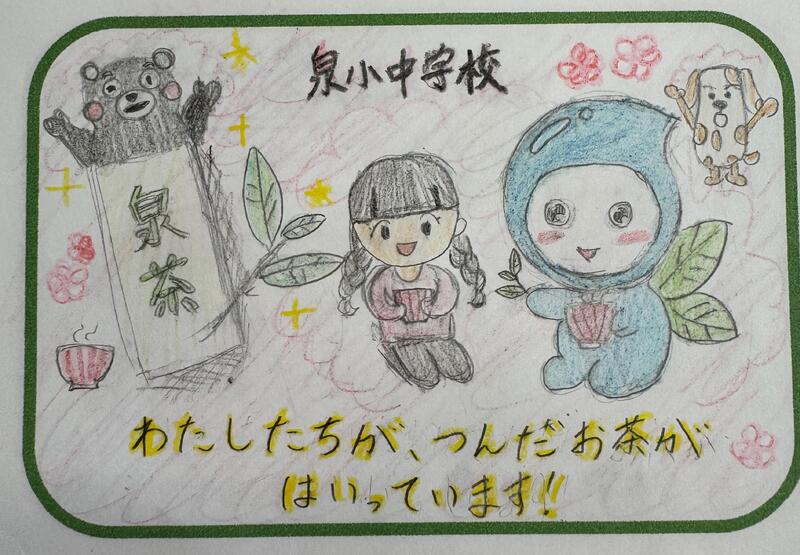 泉小中学校
泉
茶
わたしたちが、つんだお茶が
はいっています!!